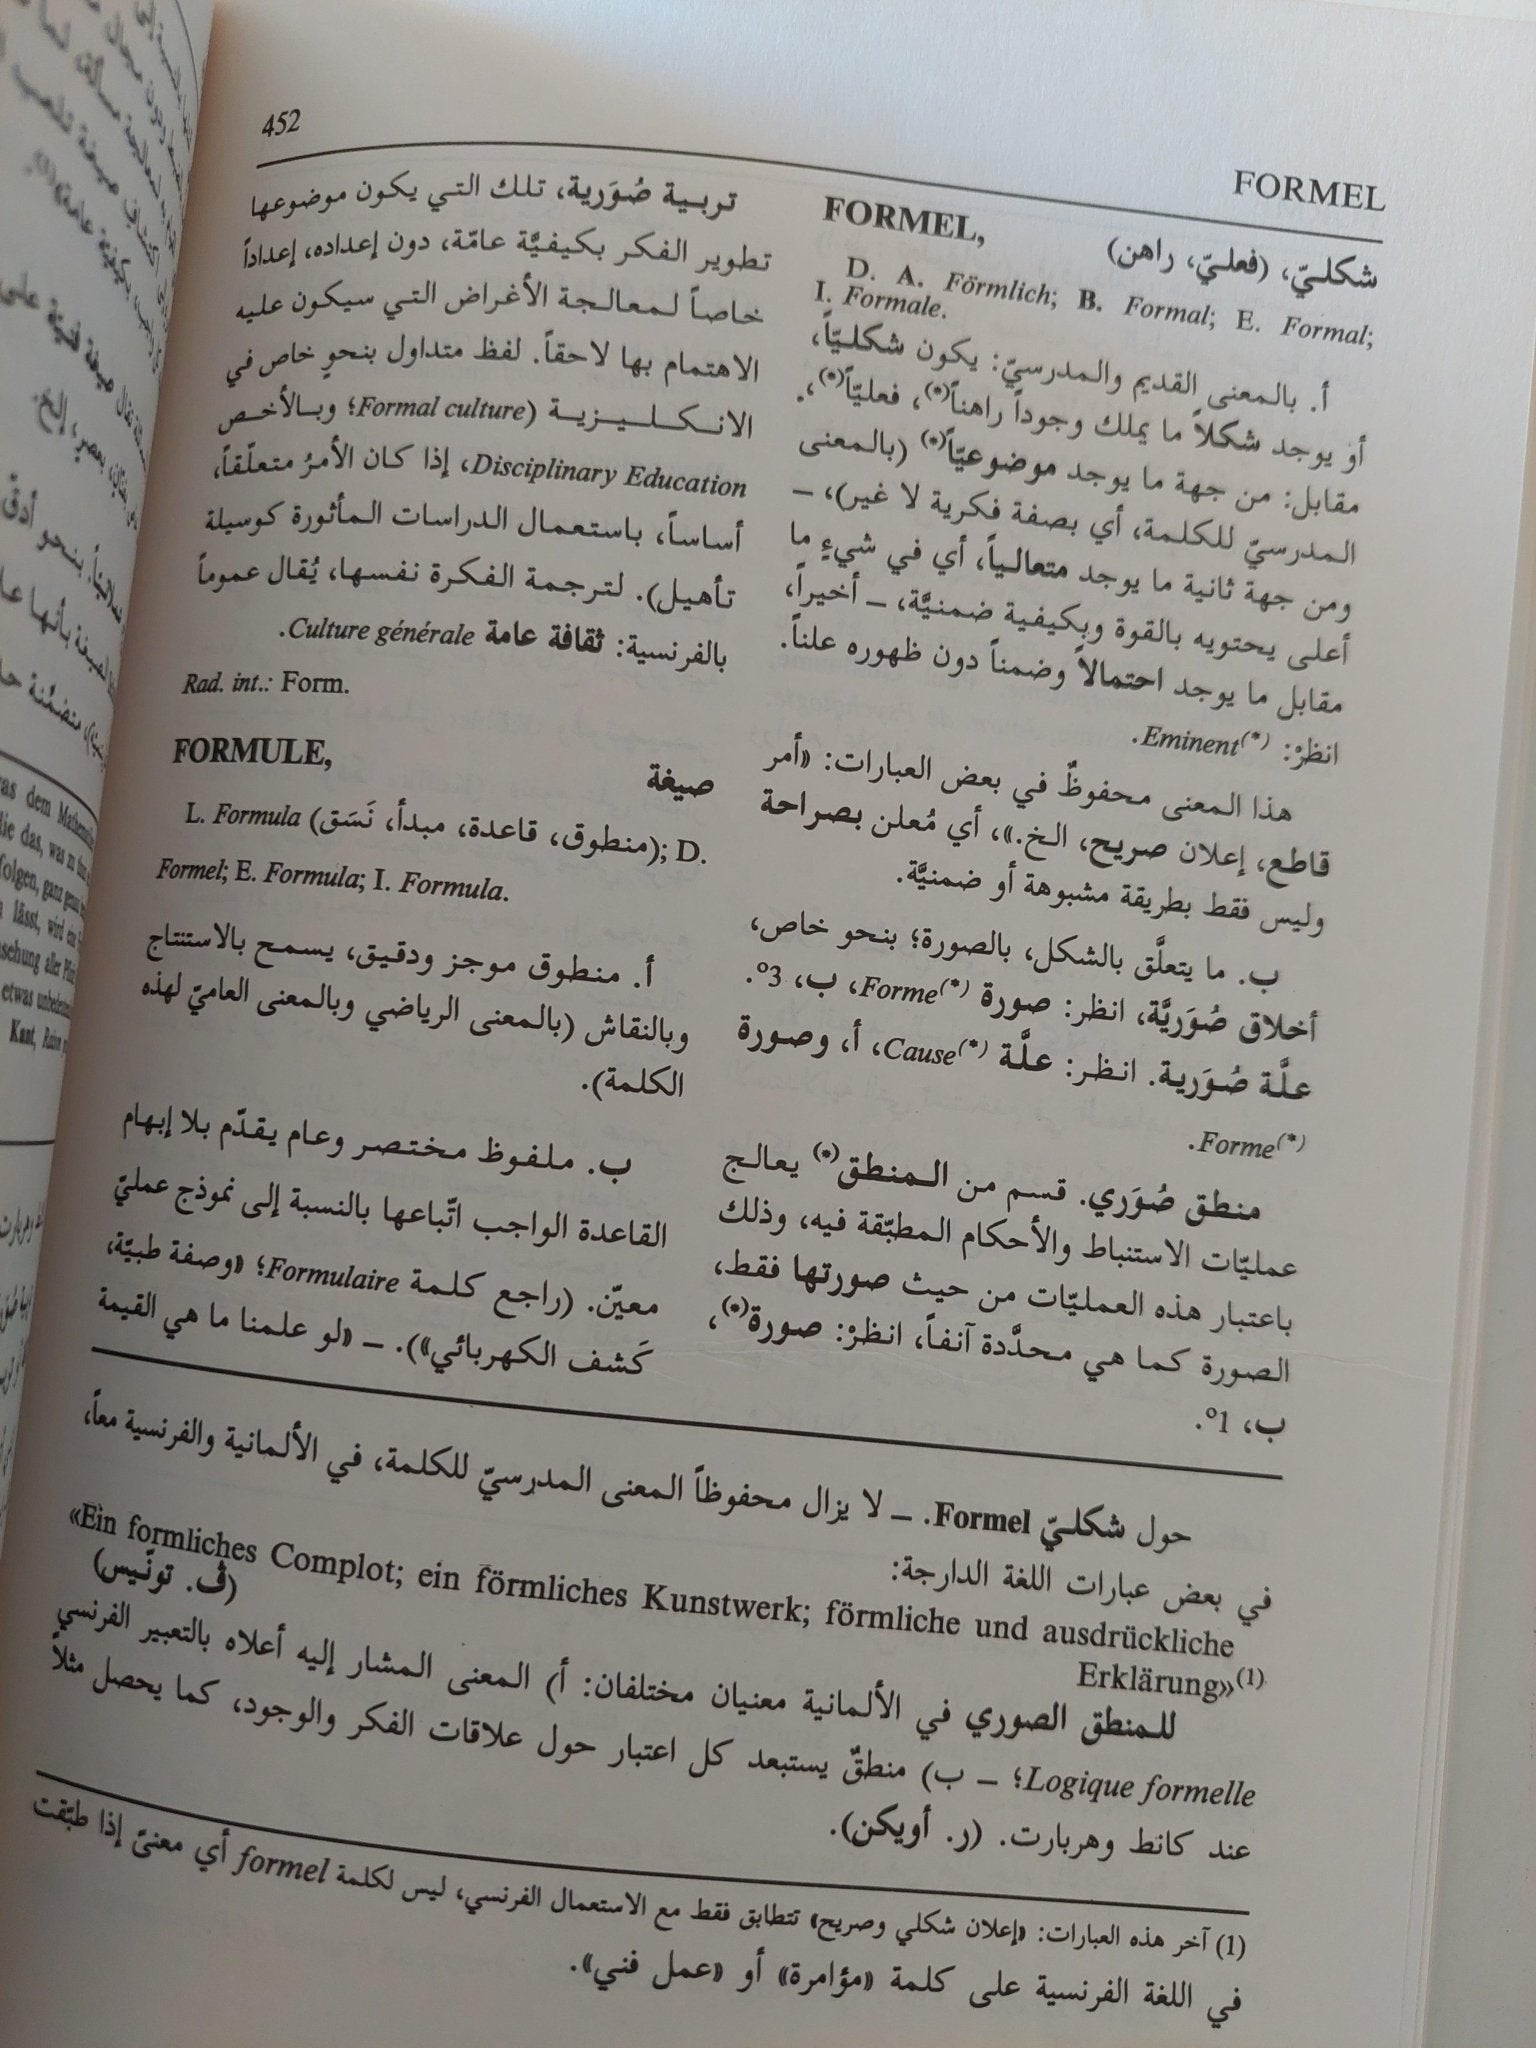 452
FORMEL
FORMEL,
شكليّ، (فعليّ، راهن)
D. A. Förmlich; B. Formal; E. Formal;
I. Formale.
أ. بالمعنى القديم والمدرسيّ: يكون شكليّاً،
أو يوجد شكلاً ما يملك وجوداً راهناً(*)، فعليّاً(*)،
مقابل: من جهة ما يوجد موضوعيّاً(*) (بالمعنى
المدرسيّ للكلمة، أي بصفة فكرية لا غير)، –
ومن جهة ثانية ما يوجد متعالياً، أي في شيءٍ ما
أعلى يحتويه بالقوة وبكيفية ضمنيَّة، – أخيراً،
مقابل ما يوجد احتمالاً وضمناً دون ظهوره علناً.
انظرْ: Eminent(*).
هذا المعنى محفوظٌ في بعض العبارات: «أمر
قاطع، إعلان صريح، الخ.»، أي مُعلن بصراحة
وليس فقط بطريقة مشبوهة أو ضمنيَّة.
ب. ما يتعلَّق بالشكل، بالصورة؛ بنحو خاص،
أخلاق صُوَريَّة، انظر: صورة Forme(*)، ب، 3°.
علَّة صُوَرية. انظر: علَّة Cause(*)، أ، وصورة
Forme(*).
منطق صُوَري. قسم من المنطق(*) يعالج
عمليّات الاستنباط والأحكام المطبّقة فيه، وذلك
باعتبار هذه العمليّات من حيث صورتها فقط،
الصورة كما هي محدَّدة آنفاً، انظرْ: صورة(*)،
ب، 1°.
تربية صُوَرية، تلك التي يكون موضوعها
تطوير الفكر بكيفيَّة عامّة، دون إعداده، إعداداً
خاصاً لمعالجة الأغراض التي سيكون عليه
الاهتمام بها لاحقاً. لفظ متداول بنحوٍ خاص في
الانكليزية (Formal culture؛ وبالأخص
Disciplinary Education، إذا كان الأمرُ متعلّقاً،
أساساً، باستعمال الدراسات المأثورة كوسيلة
تأهيل). لترجمة الفكرة نفسها، يُقال عموماً
بالفرنسية: ثقافة عامة Culture générale.
Rad. int.: Form.
FORMULE,
صيغة
L. Formula (منطوق، قاعدة، مبدأ، نَسَق); D.
Formel; E. Formula; I. Formula.
أ. منطوق موجز ودقيق، يسمح بالاستنتاج
وبالنقاش (بالمعنى الرياضي وبالمعنى العاميّ لهذه
الكلمة).
ب. ملفوظ مختصر وعام يقدّم بلا إبهام
القاعدة الواجب اتّباعها بالنسبة إلى نموذج عمليّ
معيّن. (راجع كلمة Formulaire؛ «وصفة طبيّة،
كَشف الكهربائي»). – «لو علمنا ما هي القيمة
حول شكليّ Formel. – لا يزال محفوظاً المعنى المدرسيّ للكلمة، في الألمانية والفرنسية معاً،
في بعض عبارات اللغة الدارجة:
«Ein formliches Complot; ein förmliches Kunstwerk; förmliche und ausdrückliche
Erklärung»(1)
(ڤ. تونّيس)
للمنطق الصوري في الألمانية معنيان مختلفان: أ) المعنى المشار إليه أعلاه بالتعبير الفرنسي
Logique formelle؛ – ب) منطقٌ يستبعد كل اعتبار حول علاقات الفكر والوجود، كما يحصل مثلاً
عند كانط وهربارت. (ر. أويكن).
(1) آخر هذه العبارات: «إعلان شكلي وصريح» تتطابق فقط مع الاستعمال الفرنسي، ليس لكلمة formel أي معنىً إذا طبّقت
في اللغة الفرنسية على كلمة «مؤامرة» أو «عمل فني».